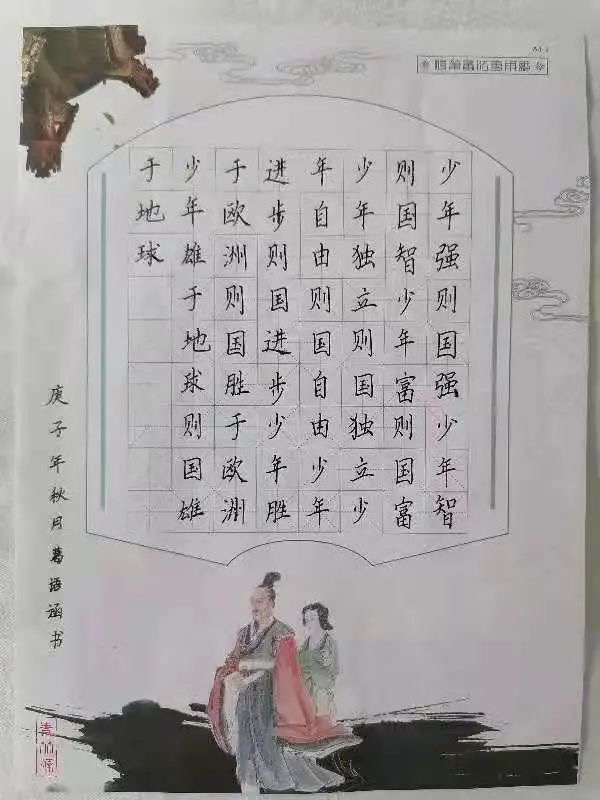 少年强则国强少年智
则国智少年富则国富
少年独立则国独立少
年自由则国自由少年
进步则国进步少年胜
于欧洲则国胜于欧洲
少年雄于地球则国雄
于地球
庚子年秋月葛语涵书